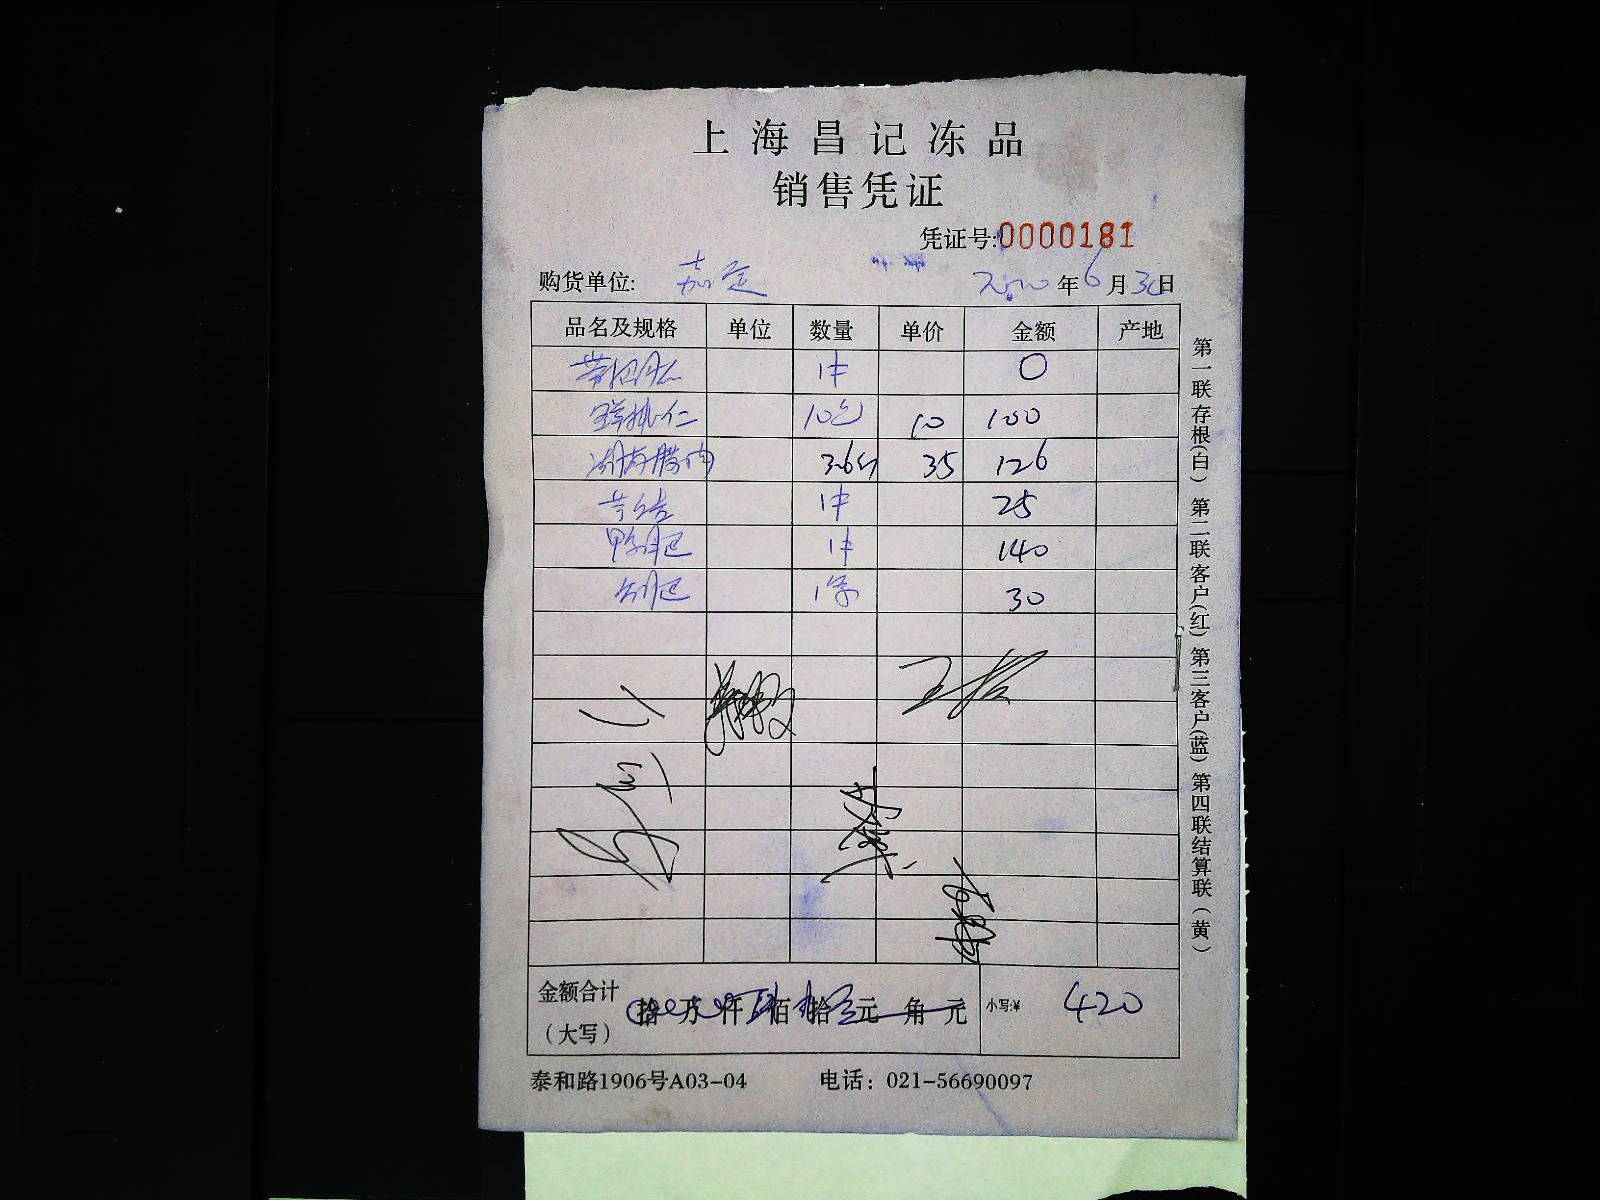 上海昌记冻品
销售凭证
凭证号:0000181
购货单位: 嘉定 2020年6月30日
品名及规格 单位 数量 单价 金额 产地
1件 0
10包 10 100
湖南腊肉 3.6斤 35 126
1件 25
鸭肫 1件 140
1 30
金额合计 拾 万 仟 佰 拾 元 角 元 小写:¥ 420
（大写）
泰和路1906号A03-04 电话：021-56690097
第一联存根(白) 第二联客户(红) 第三客户(蓝) 第四联结算联(黄)